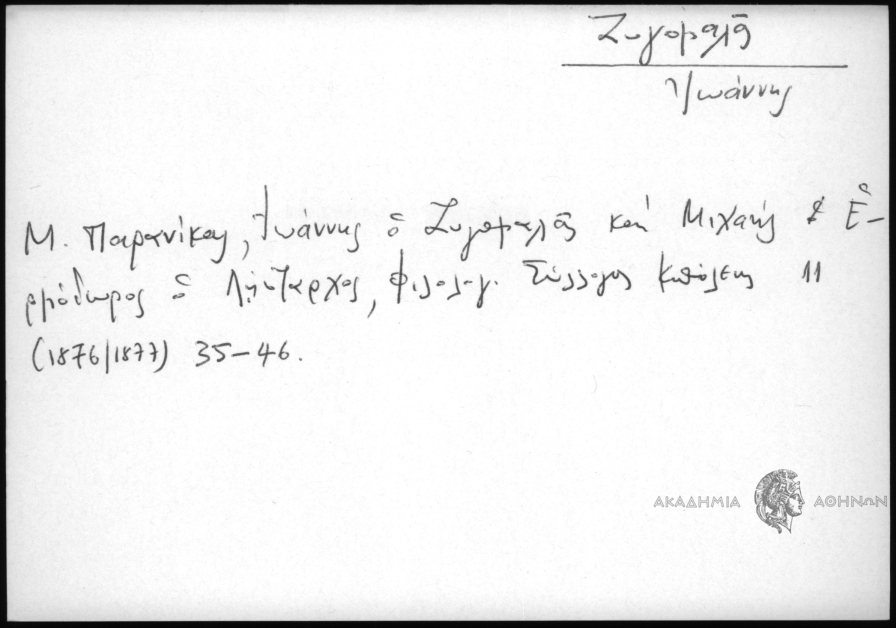 Ζυγομαλᾶ
Ἰωάννης
Μ. Παρανίκας, Ἰωάννης ὁ Ζυγομαλᾶς καὶ Μιχαὴλ Ἑ-
ρμόδωρος ὁ Λήσταρχος, Φιλολογ. Σύλλογος Κπόλεως 11
(1876/1877) 35-46.
ΑΚΑΔΗΜΙΑ ΑΘΗΝΩΝ